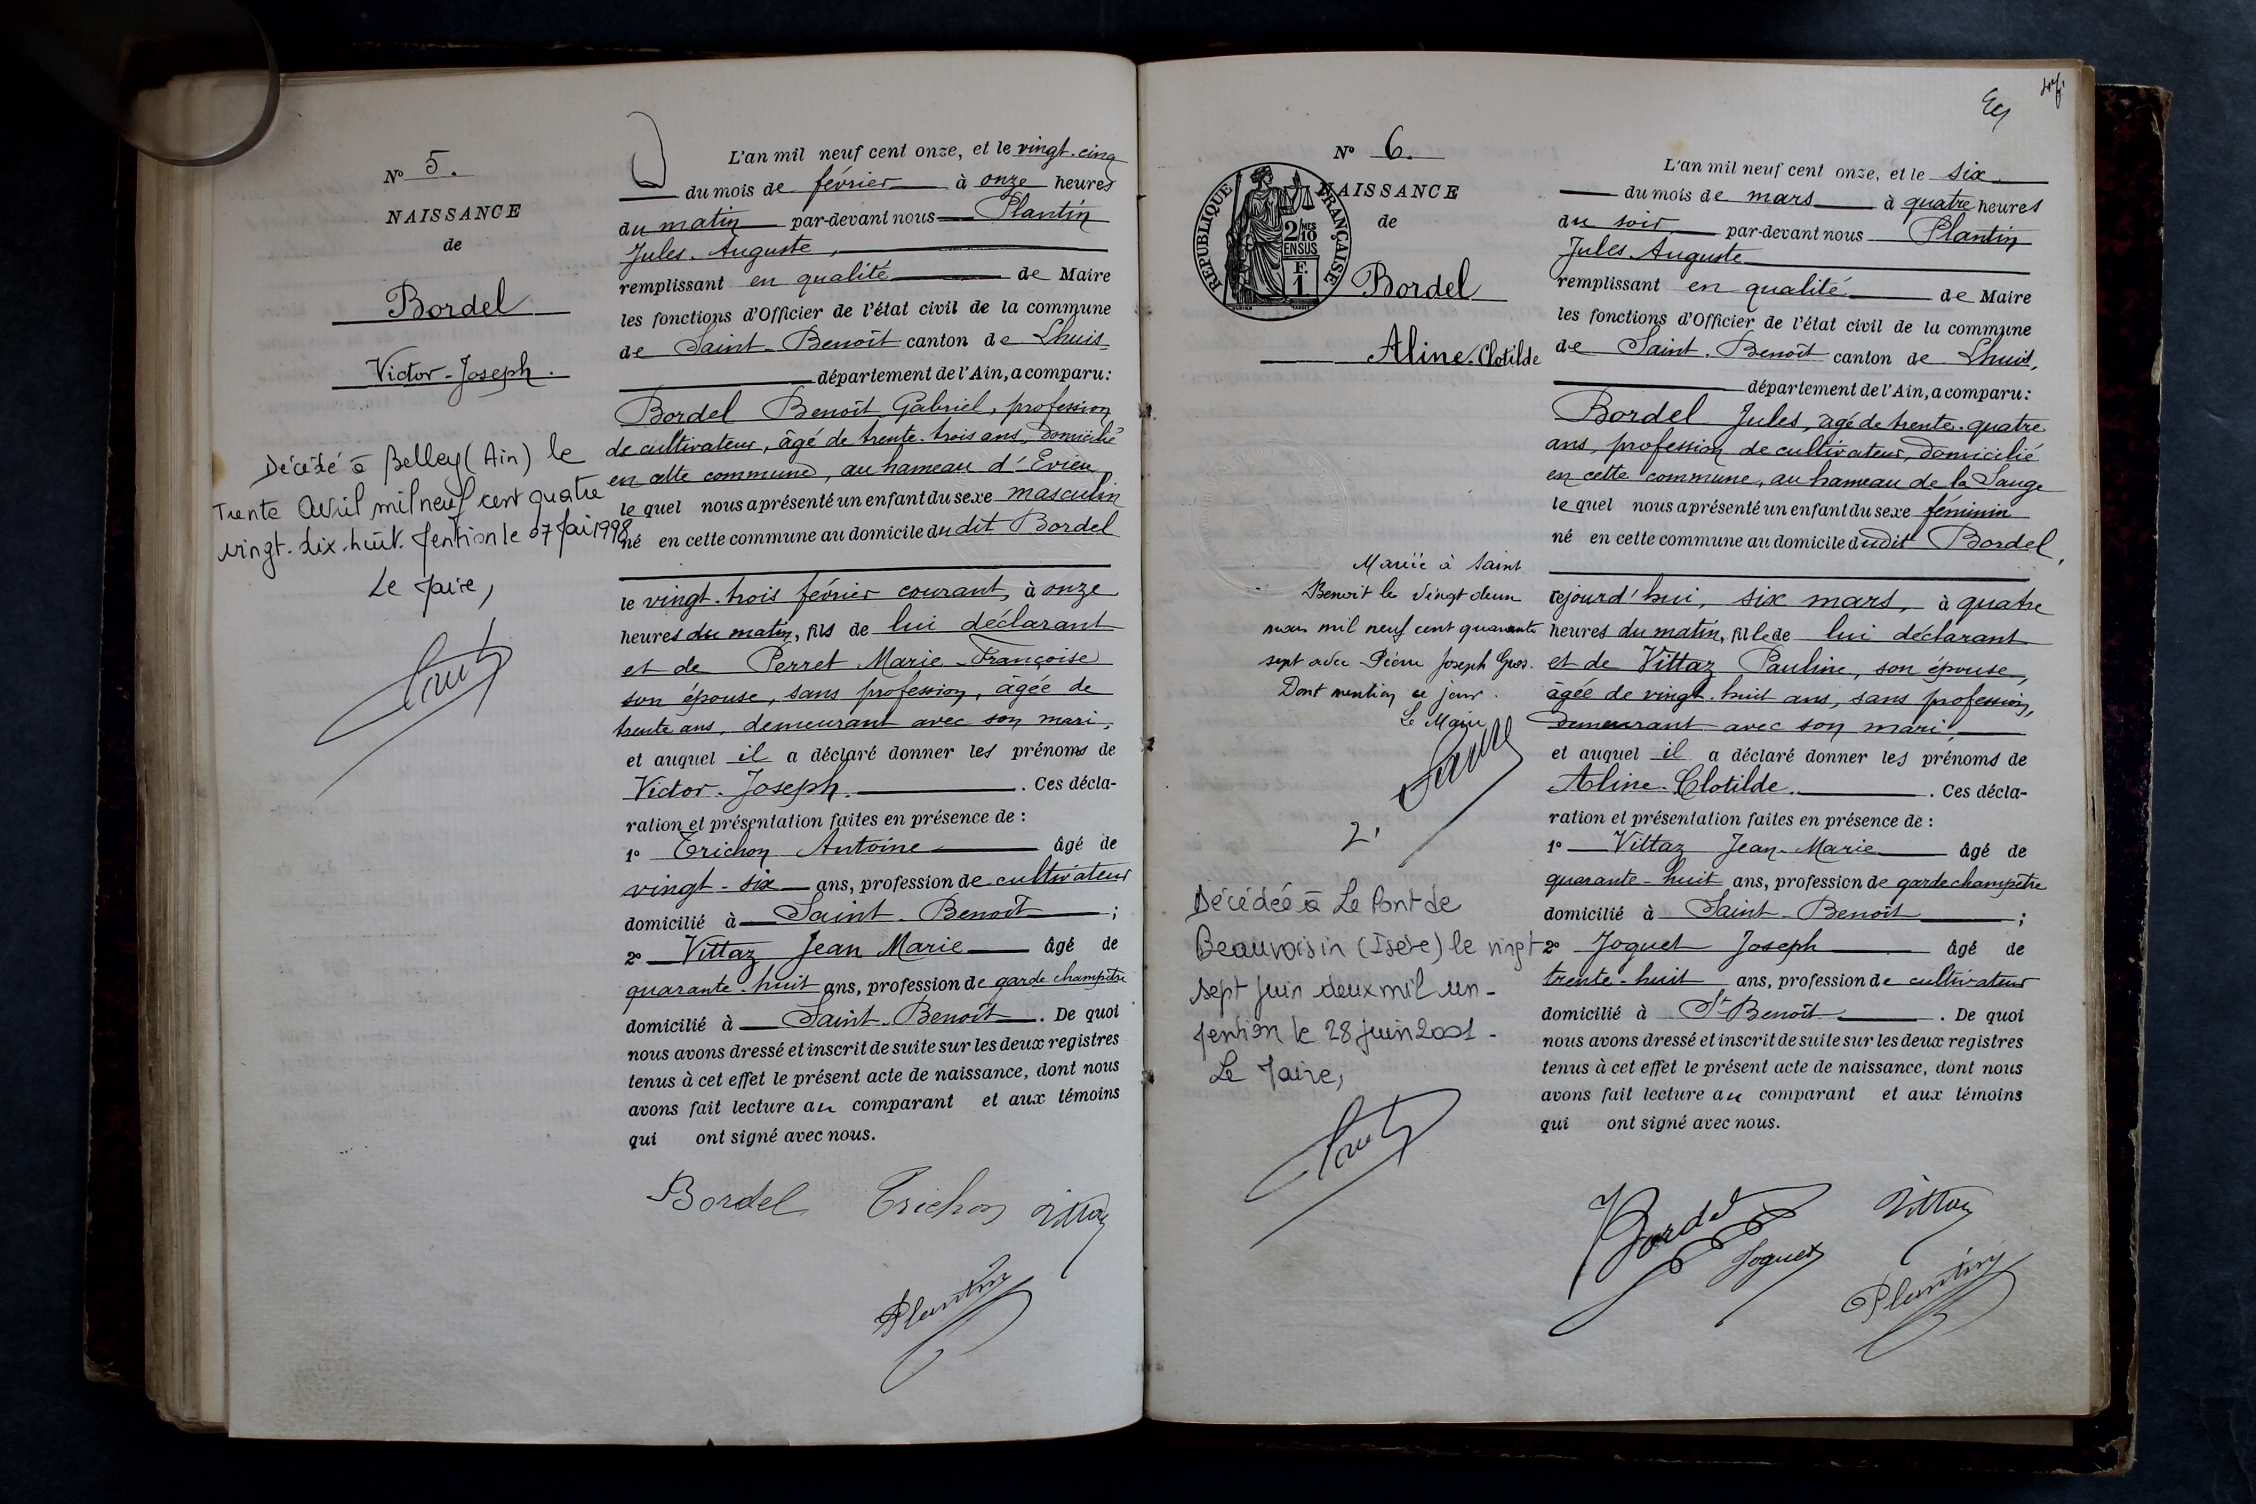 N° 5.
NAISSANCE
de
Bordel
Victor-Joseph.
Décédé à Belley (Ain) le
Trente Avril mil neuf cent quatre
vingt-dix-huit. Mention le 07 Mai 1998
Le Maire,
L'an mil neuf cent onze, et le vingt-cinq
du mois de février à onze heures
du matin par-devant nous Plantin
Jules-Auguste,
remplissant en qualité de Maire
les fonctions d'Officier de l'état civil de la commune
de Saint-Benoît canton de Lhuis
département de l'Ain, a comparu:
Bordel Benoît Gabriel, profession
de cultivateur, âgé de trente-trois ans, domicilié
en cette commune, au hameau d'Evieu
le quel nous a présenté un enfant du sexe masculin
né en cette commune au domicile du dit Bordel
le vingt-trois février courant, à onze
heures du matin, fils de lui déclarant
et de Perret Marie-Françoise
son épouse, sans profession, âgée de
trente ans, demeurant avec son mari,
et auquel il a déclaré donner les prénoms de
Victor-Joseph. Ces décla-
ration et présentation faites en présence de :
1° Trichon Antoine âgé de
vingt-six ans, profession de cultivateur
domicilié à Saint-Benoît ;
2° Vittaz Jean Marie âgé de
quarante-huit ans, profession de garde champêtre
domicilié à Saint-Benoît. De quoi
nous avons dressé et inscrit de suite sur les deux registres
tenus à cet effet le présent acte de naissance, dont nous
avons fait lecture au comparant et aux témoins
qui ont signé avec nous.
Bordel Trichon Vittaz
Plantin
N° 6.
NAISSANCE
de
RÉPUBLIQUE FRANÇAISE
2/10 EN SUS
F. 1
Bordel
Aline-Clotilde
Mariée à Saint
Benoit le vingt deux
mars mil neuf cent quarante
sept avec Pierre Joseph Gros.
Dont mention ce jour.
Le Maire
2.
Décédée à Le Pont de
Beauvoisin (Isère) le vingt
sept juin deux mil un-
Mention le 28 juin 2001-
Le Maire,
47
L'an mil neuf cent onze, et le six
du mois de mars à quatre heures
du soir par-devant nous Plantin
Jules-Auguste
remplissant en qualité de Maire
les fonctions d'Officier de l'état civil de la commune
de Saint-Benoît canton de Lhuis,
département de l'Ain, a comparu:
Bordel Jules, âgé de trente-quatre
ans, profession de cultivateur, domicilié
en cette commune, au hameau de la Sauge
le quel nous a présenté un enfant du sexe féminin
né en cette commune au domicile dudit Bordel,
cejourd'hui, six mars, à quatre
heures du matin, fille de lui déclarant
et de Vittaz Pauline, son épouse,
âgée de vingt-huit ans, sans profession,
demeurant avec son mari,
et auquel il a déclaré donner les prénoms de
Aline-Clotilde. Ces décla-
ration et présentation faites en présence de :
1° Vittaz Jean-Marie âgé de
quarante-huit ans, profession de garde champêtre
domicilié à Saint-Benoît ;
2° Joguet Joseph âgé de
trente-huit ans, profession de cultivateur
domicilié à St-Benoît. De quoi
nous avons dressé et inscrit de suite sur les deux registres
tenus à cet effet le présent acte de naissance, dont nous
avons fait lecture au comparant et aux témoins
qui ont signé avec nous.
JBordel Vittaz
Joguet Plantin